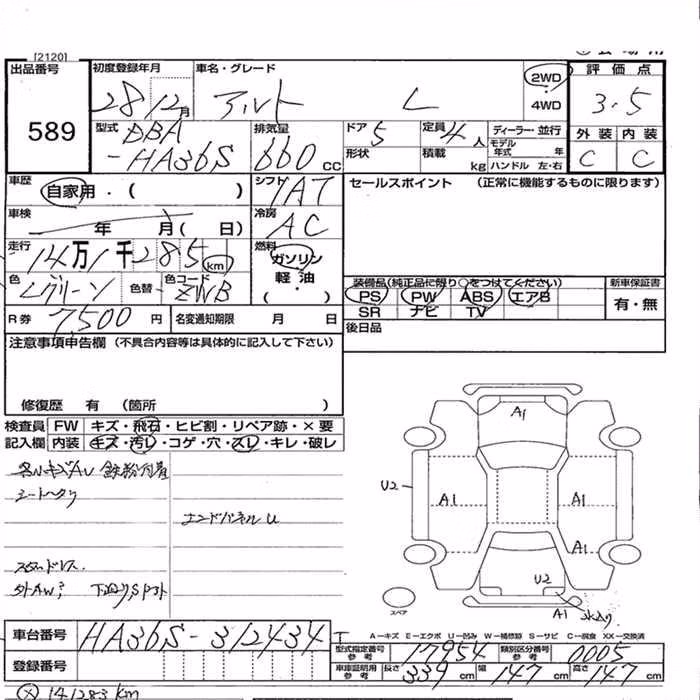 [2120]
出品番号
589
初度登録年月 車名・グレード 2WD 4WD
28 12月 アルト L
評価点
3.5
外装 内装
C C
型式 DBA
-HA36S
排気量
660 CC
ドア 5 定員 4人 ディーラー・並行
形状 積載 kg モデル年式 年
ハンドル 左・右
車歴 自家用・( )
シフト 1AT
セールスポイント (正常に機能するものに限ります)
車検 年 月( 日)
冷房 AC
走行 14万1千285 km
燃料 ガソリン
軽・油
( ・ )
色 Lグリーン 色替 色コード ZWB
装備品(純正品に限り○をつけてください) 新車保証書
PS PW ABS エアB 有・無
SR ナビ TV
R券 7,500 円 名変通知期限 月 日
後日品
注意事項申告欄 (不具合内容等は具体的に記入して下さい)
修復歴 有 (箇所 )
検査員 FW キズ・飛石・ヒビ割・リペア跡・×要
記入欄 内装 キズ・汚レ・コゲ・穴・スレ・キレ・破レ
各小キズAU 鉄粉付着
シートヘタリ
エンドパネルU
スタッドレス.
外AW? 下廻りSアト
A1
U2 A1 A1
A1
U2
スペア
A1
A-キズ E-エクボ U-凹み W-補修跡 S-サビ C-腐食 XX-交換済
車台番号 HA36S-312434 T
型式指定番号 参考 17954 類別区分番号 参考 0005
登録番号
車庫証明用 参考 長さ 339 cm 幅 147 cm 高さ 147 cm
141283 km